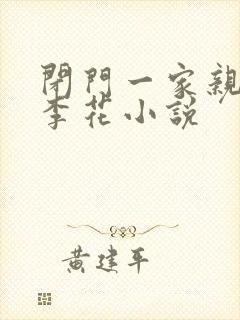 閉門一家親
李花小説
黄建平